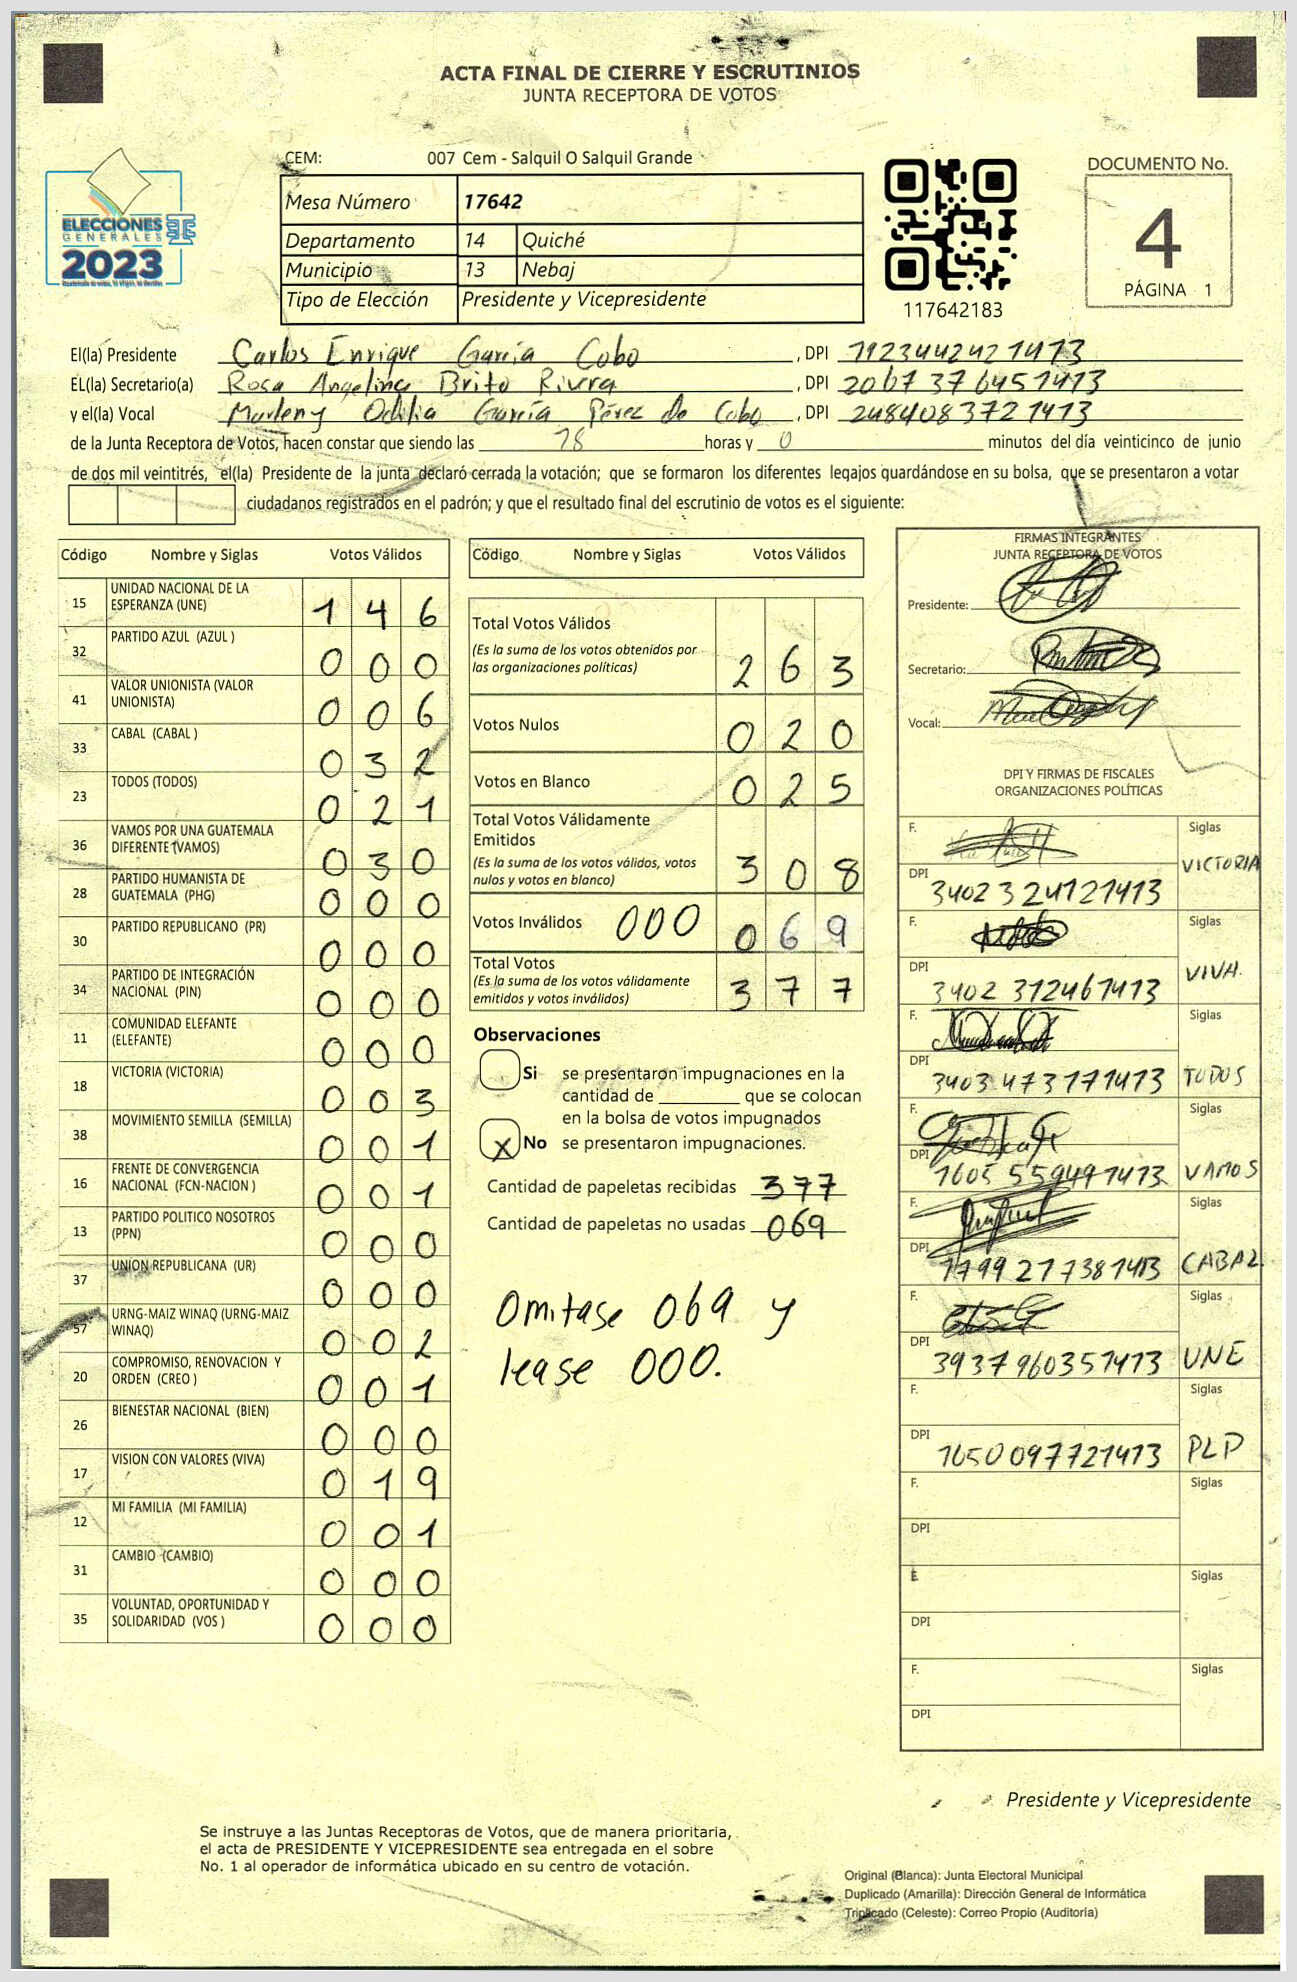 ACTA FINAL DE CIERRE Y ESCRUTINIOS
JUNTA RECEPTORA DE VOTOS
CEM: 007 Cem - Salquil O Salquil Grande
ELECCIONES
GENERALES
2023
Mesa Número 17642
Departamento 14 Quiché
Municipio 13 Nebaj
Tipo de Elección Presidente y Vicepresidente
117642183
DOCUMENTO No.
4
PÁGINA 1
El(la) Presidente Carlos Enrique García Cobo , DPI 1923442421413
EL(la) Secretario(a) Rosa Angelina Brito Rivera , DPI 2067376451413
y el(la) Vocal Marleny Odilia García Pérez de Cobo , DPI 2484083721413
de la Junta Receptora de Votos, hacen constar que siendo las 18 horas y 0 minutos del día veinticinco de junio
de dos mil veintitrés, el(la) Presidente de la junta declaró cerrada la votación; que se formaron los diferentes legajos guardándose en su bolsa, que se presentaron a votar
ciudadanos registrados en el padrón; y que el resultado final del escrutinio de votos es el siguiente:
Código Nombre y Siglas Votos Válidos
15 UNIDAD NACIONAL DE LA
ESPERANZA (UNE) 1 4 6
32 PARTIDO AZUL (AZUL ) 0 0 0
41 VALOR UNIONISTA (VALOR
UNIONISTA) 0 0 6
33 CABAL (CABAL ) 0 3 2
23 TODOS (TODOS) 0 2 1
36 VAMOS POR UNA GUATEMALA
DIFERENTE (VAMOS) 0 3 0
28 PARTIDO HUMANISTA DE
GUATEMALA (PHG) 0 0 0
30 PARTIDO REPUBLICANO (PR) 0 0 0
34 PARTIDO DE INTEGRACIÓN
NACIONAL (PIN) 0 0 0
11 COMUNIDAD ELEFANTE
(ELEFANTE) 0 0 0
18 VICTORIA (VICTORIA) 0 0 3
38 MOVIMIENTO SEMILLA (SEMILLA) 0 0 1
16 FRENTE DE CONVERGENCIA
NACIONAL (FCN-NACION ) 0 0 1
13 PARTIDO POLITICO NOSOTROS
(PPN) 0 0 0
37 UNION REPUBLICANA (UR) 0 0 0
57 URNG-MAIZ WINAQ (URNG-MAIZ
WINAQ) 0 0 2
20 COMPROMISO, RENOVACION Y
ORDEN (CREO ) 0 0 1
26 BIENESTAR NACIONAL (BIEN) 0 0 0
17 VISION CON VALORES (VIVA) 0 1 9
12 MI FAMILIA (MI FAMILIA) 0 0 1
31 CAMBIO (CAMBIO) 0 0 0
35 VOLUNTAD, OPORTUNIDAD Y
SOLIDARIDAD (VOS ) 0 0 0
Código Nombre y Siglas Votos Válidos
Total Votos Válidos
(Es la suma de los votos obtenidos por
las organizaciones políticas) 2 6 3
Votos Nulos 0 2 0
Votos en Blanco 0 2 5
Total Votos Válidamente
Emitidos
(Es la suma de los votos válidos, votos
nulos y votos en blanco) 3 0 8
Votos Inválidos 000 0 6 9
Total Votos
(Es la suma de los votos válidamente
emitidos y votos inválidos) 3 7 7
Observaciones
Si se presentaron impugnaciones en la
cantidad de ________ que se colocan
en la bolsa de votos impugnados
X No se presentaron impugnaciones.
Cantidad de papeletas recibidas 377
Cantidad de papeletas no usadas 069
Omitase 069 y
lease 000.
FIRMAS INTEGRANTES
JUNTA RECEPTORA DE VOTOS
Presidente:
Secretario:
Vocal:
DPI Y FIRMAS DE FISCALES
ORGANIZACIONES POLÍTICAS
F. Siglas
DPI 3402324121413 VICTORIA
F. Siglas
DPI 3402312461413 VIVA.
F. Siglas
DPI 3403473171413 TODOS
F. Siglas
DPI 1605559491413 VAMOS
F. Siglas
DPI 1799277381413 CABAL
F. Siglas
DPI 3937960351413 UNE
F. Siglas
DPI 1650097721413 PLP
F. Siglas
DPI
F. Siglas
DPI
F. Siglas
DPI
Presidente y Vicepresidente
Se instruye a las Juntas Receptoras de Votos, que de manera prioritaria,
el acta de PRESIDENTE Y VICEPRESIDENTE sea entregada en el sobre
No. 1 al operador de informática ubicado en su centro de votación.
Original (Blanca): Junta Electoral Municipal
Duplicado (Amarilla): Dirección General de Informática
Triplicado (Celeste): Correo Propio (Auditoría)